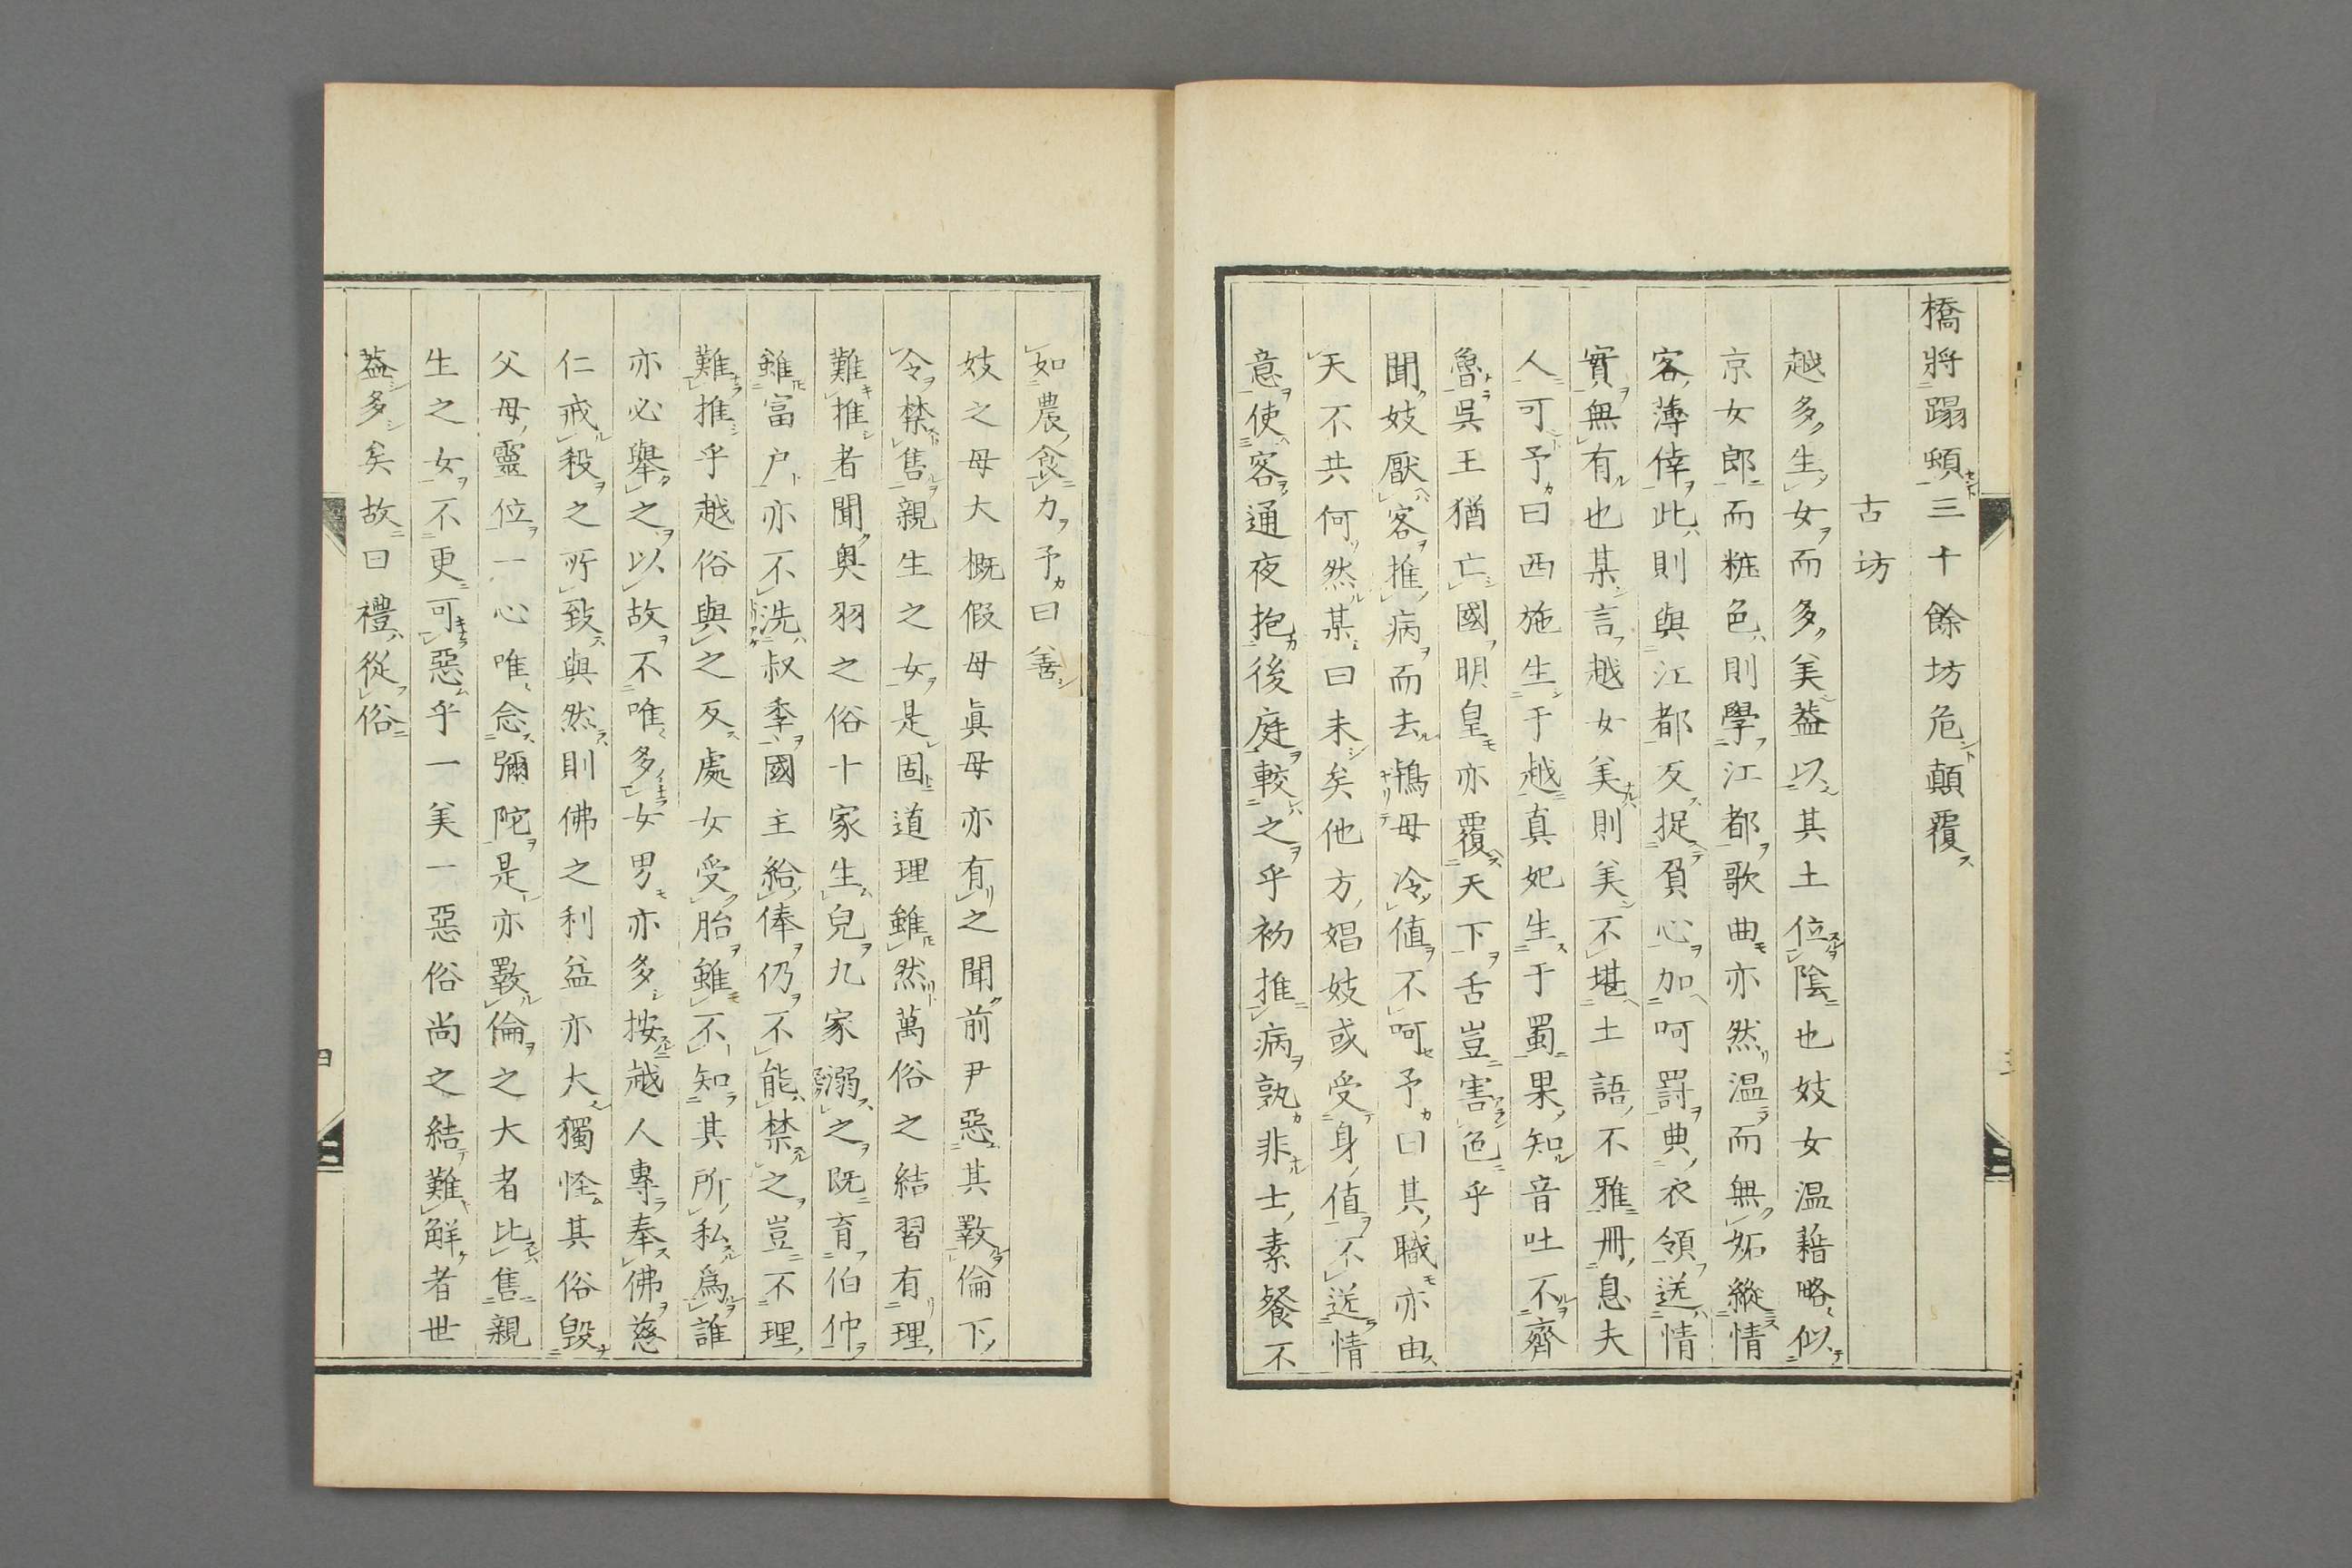 橋將蹋頓三十餘坊危顛覆
古坊
越多生女而多美蓋以其土位陰也妓女温藉略似
京女郎而粧色則學江都歌曲亦然温而無妬縱情
客薄倖此則與江都反捉負心加呵罸典衣領送情
實無有也某言越女美則美不堪土語不雅冊息夫
人可予曰西施生于越真妃生于蜀果知音吐不齊
魯呉王猶亡國明皇亦覆天下舌豈害色乎
聞妓厭客推病而去鴇母冷値不呵予曰其職亦由
天不共何然某曰未矣他方娼妓或受身値不送情
意使客通夜抱後庭較之乎初推病孰非士素餐不
如農食力予曰善
妓之母大概假母眞母亦有之聞前尹惡其斁倫下
令禁售親生之女是固道理雖然萬俗之結習有理
難推者聞奧羽之俗十家生兒九家溺之既育伯仲
雖富戸亦不洗叔季國主給俸仍不能禁之豈不理
難推乎越俗與之反處女受胎雖不知其所私爲誰
亦必舉之以故不唯多女男亦多按越人專奉佛慈
仁戒殺之所致與然則佛之利益亦大獨怪其俗毀
父母靈位一心唯念彌陀是亦斁倫之大者比售親
生之女不更可惡乎一美一惡俗尚之結難解者世
益多矣故曰禮從俗